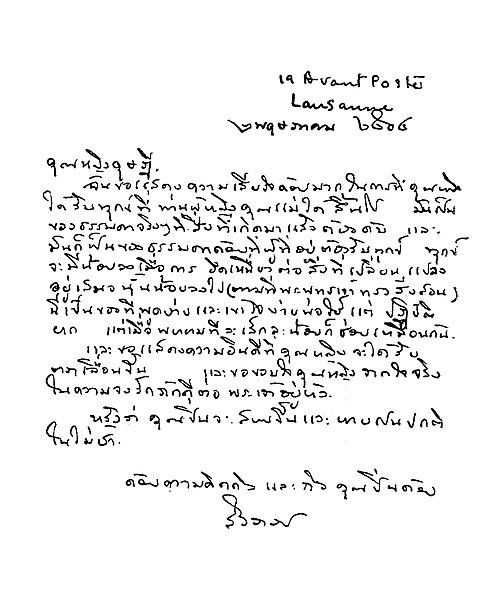 19 Avant Poste
Lausanne
๒ พฤษภาคม ๒๕๐๔
คุณหญิง
ฉันขอแสดงความเสียใจด้วยมาก ในการที่คุณหญิง
ได้รับทุกข์ ที่ท่านผู้หญิงคุณแม่ได้สิ้นไป มันเป็น
ของธรรมดาจริงๆ ที่สิ่งที่เกิดมาแล้วต้องดับ และ
มันก็เป็นของธรรมดาด้วยที่ผู้ที่อยู่ต้องรับทุกข์ ทุกข์
จะมีน้อยลงเมื่อการยึดเหนี่ยวต่อสิ่งที่เปลี่ยนแปลง
อยู่เสมอนั้นน้อยลงไป (ตามที่พระพุทธเจ้าทรงสั่งสอน)
นี่เป็นของที่พูดง่ายและเข้าใจง่ายพอใช้ แต่ปฏิบัติ
ยาก แต่เมื่อพยายามทีละเล็กละน้อยก็ช่วยเหมือนกัน.
และขอแสดงความยินดีที่คุณหญิงจะได้รับ
ตราเลื่อนขึ้น และขอขอบใจคุณหญิงจากใจจริง
ในความจงรักภักดีต่อพระเจ้าอยู่หัว.
หวังว่าคุณปิ่นจะสบายขึ้นและหายเป็นปกติ
ในไม่ช้า.
ด้วยความคิดถึง และถึงคุณปิ่นด้วย